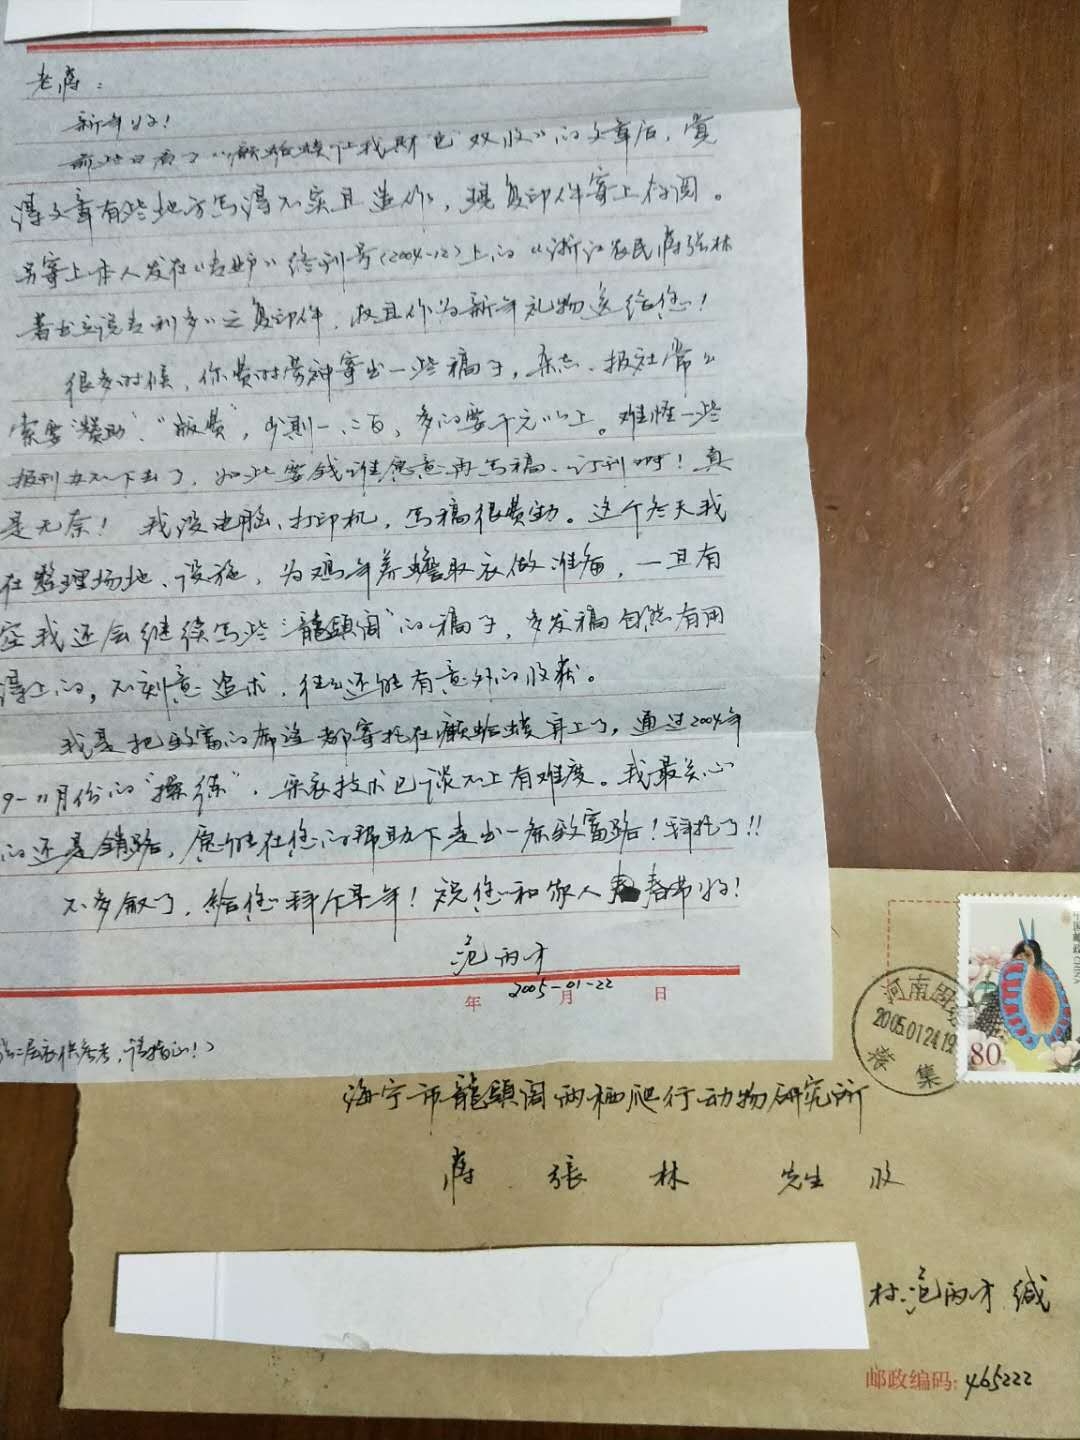 老蒋：
新年好！
前些日看了“癞蛤蟆让我财色双收”的文章后，觉
得文章有些地方写得不实且造作，现复印件寄上存阅。
另寄上本人发在“专业户”终刊号(2004-12)上的“浙江农民蒋张林
著书立说专利多”之复印件，权且作为新年礼物送给您！
很多时候，你费时劳神寄出一些稿子，杂志、报社常々
索要“赞助”、“版费”，少则一、二百，多的要千元以上。难怪一些
报刊办不下去了，如此要钱谁愿意再写稿、订刊啊！真
是无奈！ 我没电脑、打印机，写稿很费劲。这个冬天我
在整理场地、设施，为鸡年养蟾取衣做准备，一旦有
空我还会继续写些“龍頭阁”的稿子，多发稿自然有用
得上的，不刻意追求，往々还能有意外的收获。
我是把致富的希望都寄托在癞蛤蟆身上了，通过2004年
9-11月份的“操练”，采衣技术已谈不上有难度。我最关心
的还是銷路，愿能在您的帮助下走出一条致富路！拜托了！！
不多叙了，給您拜个早年！祝您和家人春节好！
范丙才
2005-01-22
年 月 日
供参考，请指正！）
中国邮政 CHINA
80分
河南固
2005.01.24.19
集
海宁市龍頭阁两栖爬行动物研究所
蒋 張 林 先生 收
村范丙才 缄
邮政编码：465222